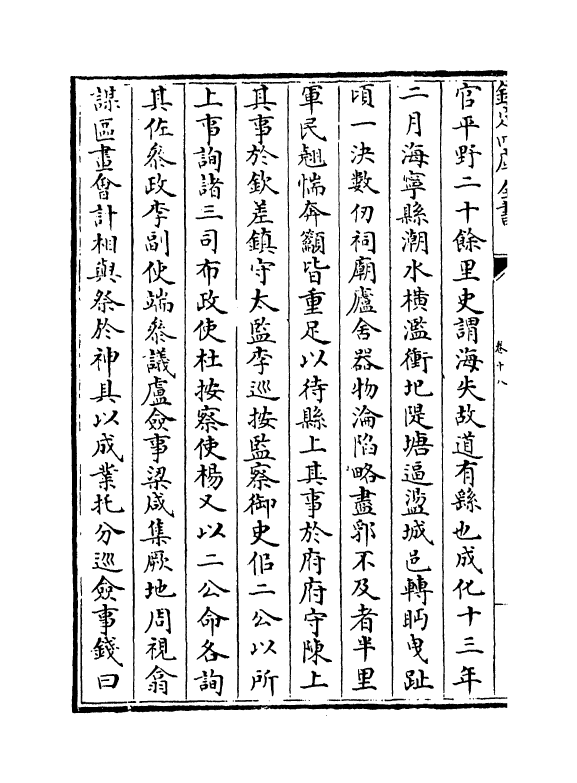 欽定四庫全書
卷十八
官平野二十餘里史謂海失故道有繇也成化十三年
二月海寧縣潮水橫濫衝圯隄塘逼盪城邑轉眄曵趾
頃一決數仞祠廟廬舍器物淪陷略盡郛不及者半里
軍民翹惴奔籲皆重足以待縣上其事於府府守陳上
其事於欽差鎮守太監李巡按監察御史侣二公以所
上事詢諸三司布政使杜按察使楊又以二公命各詢
其佐叅政李副使端叅議盧僉事梁咸集厥地周視翕
謀區畫會計相與祭於神具以成業托分巡僉事錢曰